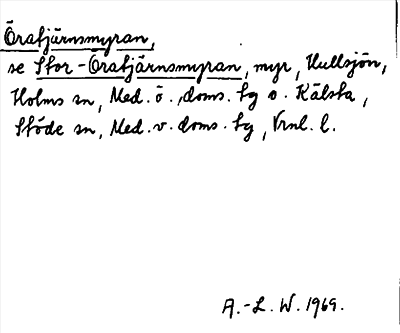 Öratjärnsmyran,
se Stor-Öratjärnsmyran, myr, Hullsjön,
Holms sn, Med. ö. doms. tg o. Kälsta,
Stöde sn, Med. v. doms. tg, Vrnl. l.
A.-L. W. 1969.